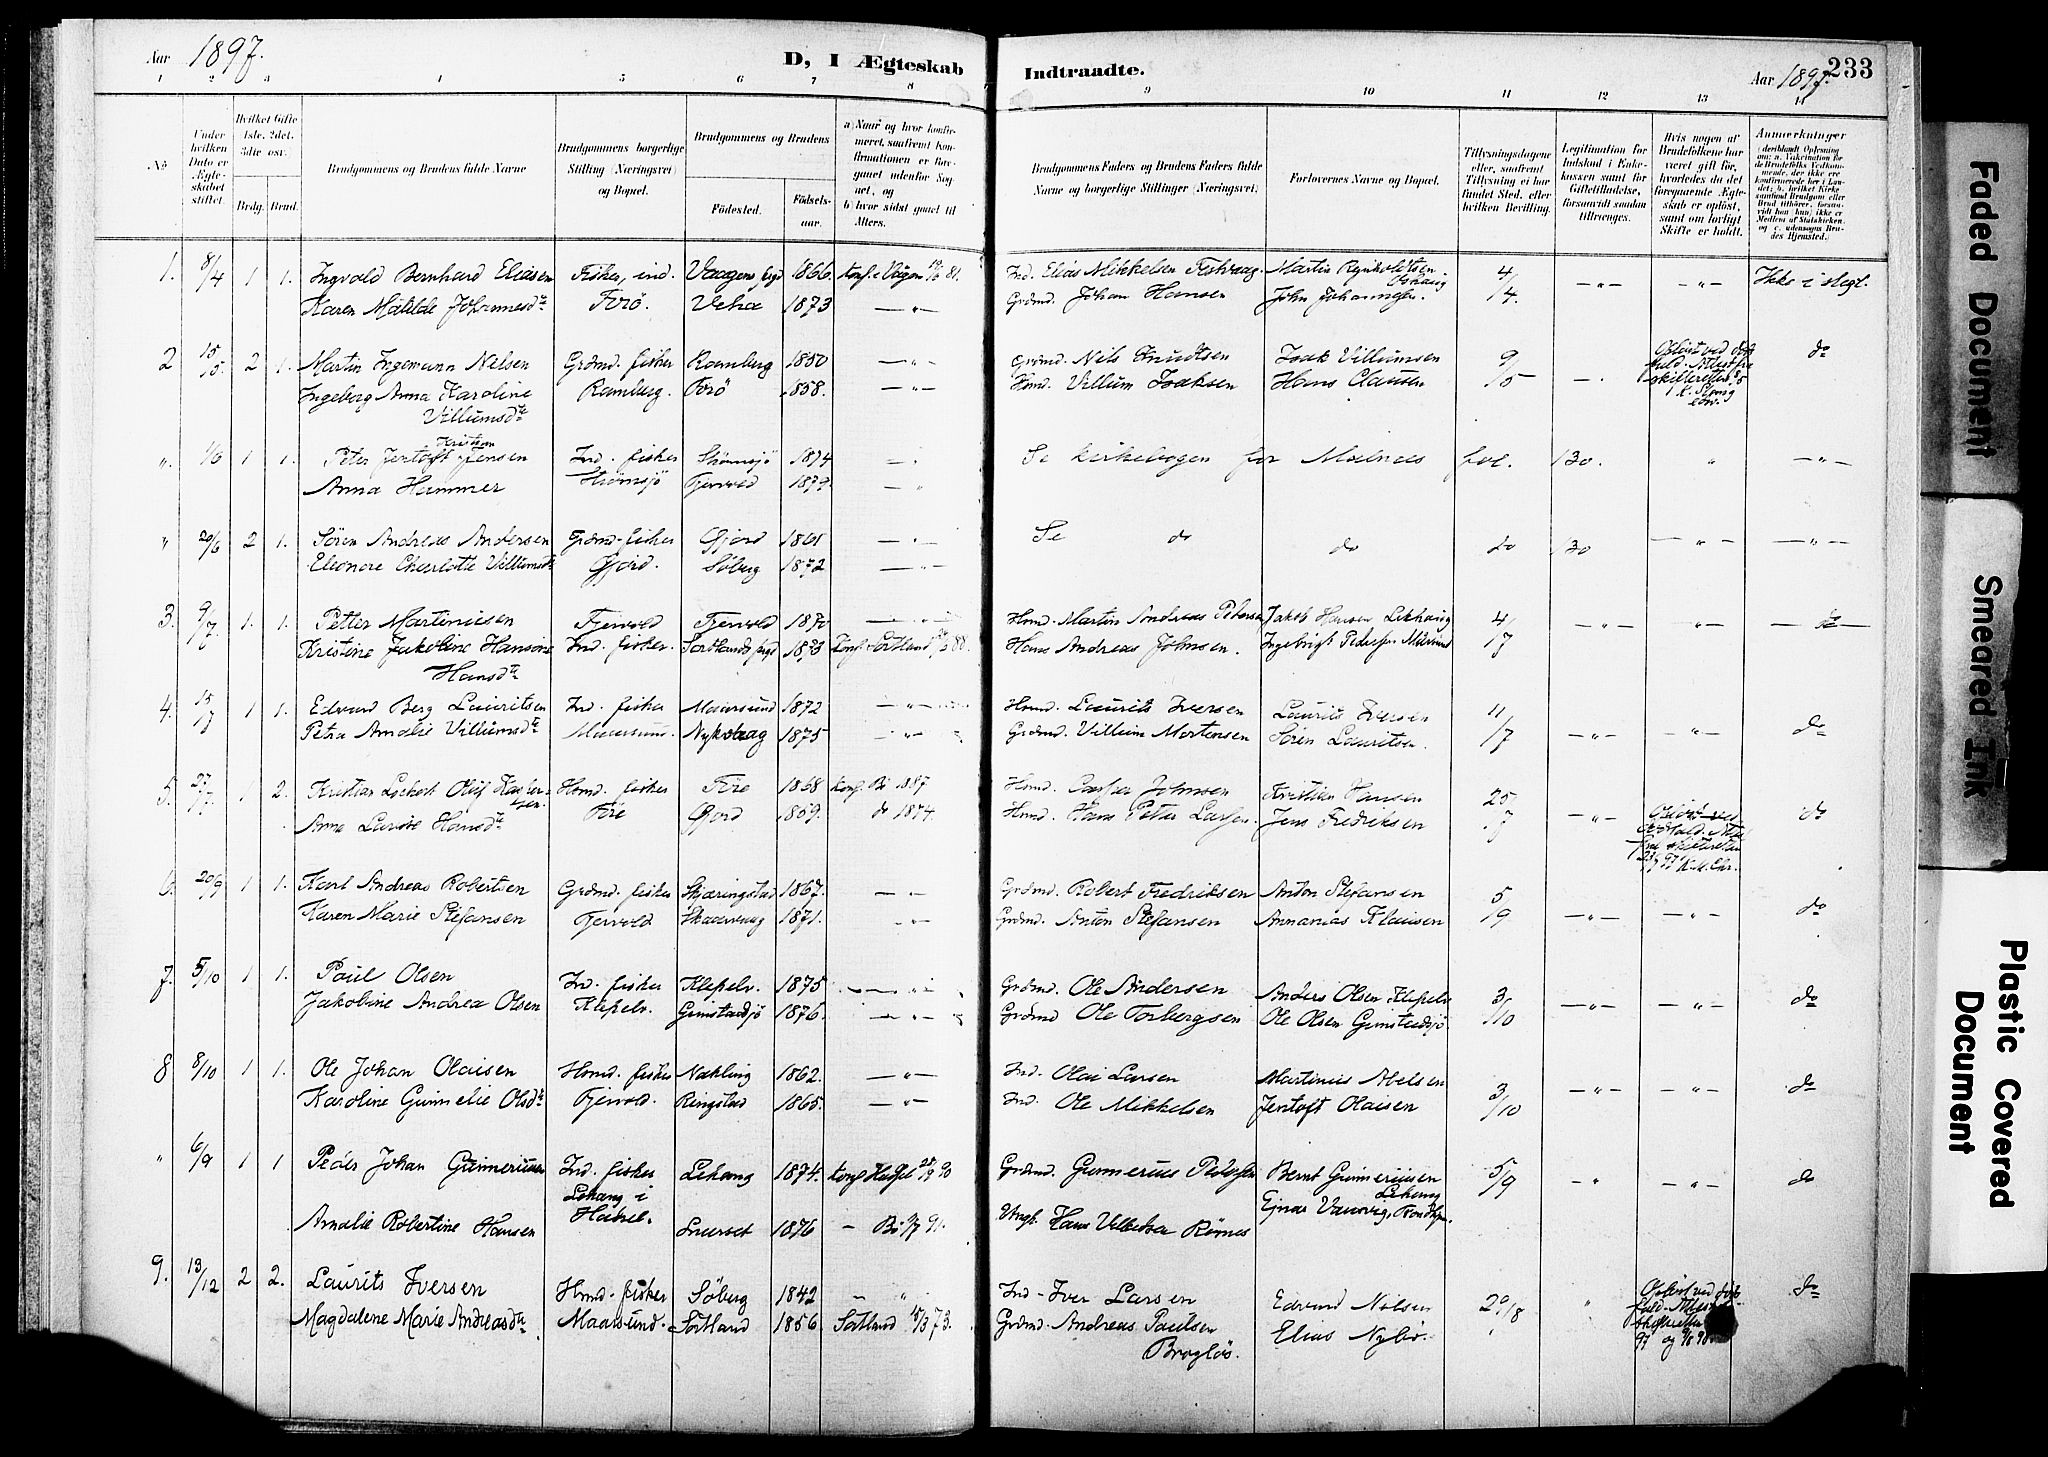 Aar 1897.
D, I Ægteskab Indtraadte.
Aar 1897. 233
1 2 3 4 5 6 7 8 9 10 11 12 13 14
No
Under hvilken Dato er Ægteskabet stiftet.
Hvilket Gifte 1ste, 2det, 3die osv.
Brdg. Brud.
Brudgommens og Brudens fulde Navne
Brudgommens borgerlige Stilling (Næringsvei) og Bopæl.
Brudgommens og Brudens
Födested. Födselsaar.
a) Naar og hvor konfirmeret, saafremt Konfirmationen er foregaaet udenfor Sognet, og
b) hvor sidst gaaet til Alters.
Brudgommens Faders og Brudens Faders fulde Navne og borgerlige Stillinger (Næringsvei).
Forlovernes Navne og Bopæl.
Tillysningsdagene eller, saafremt Tillysning ei har fundet Sted, efter hvilken Bevilling.
Legitimation for Indskud i Enkekassen samt for Giftetilladelse, forsaavidt saadan tiltrænges.
Hvis nogen af Brudefolkene har været gift før, hvorledes da det foregaaende Ægteskab er opløst, samt om lovligt Skifte er holdt.
Anmærkninger
1. 8/4 1 1. Ingvald Bernhard Eliasen Fisker, ind. Vaagens prgd 1866. Konf. i Vaagen 81. Ind. Elias Mikkelsen Festvaag. Martin 4/4 Ikke i slegt.
Karen Matilde Johannesdtr Forö. 1873 Grdmd. Johan Hansen John Johannesen.
2 15/5 2 1. Martin Ingemann Nilsen Grdmd. fisker Ramberg 1850 Grdmd. Nils Knudtsen Isak Villumsen 9/5 do
Ingeborg Anna Karoline Ramberg. Forö 1858. Hmd. Villum Isaksen Hans Clausen
Villumsdtr
" 1/6 1 1. Peter Jentoft Kristian Jensen Ind. fisker Strömsjö 1874 Se kirkebogen for Malnes fol. 130.
Anna Hammer Strömsjö Tjervold 1879.
" 20/6 2 1. Sören Andreas Andersen Grdmd. fisker Gjord 1861 Se do do 20 130
Eleonore Charlotte Villumsdtr Gjord. Söberg 1872
3. 9/7. 1. 1. Petter Martinusen Tjervold Tjervold 1870 Hmd. Martin Andreas Petersen Jakob Hansen Lekhang 4/7 do
Kristine Jakobine Hansine Ind. fisker. Sortlands prgd 1873 Konf. Sortland 88. Hans Andreas Johnsen. Ingebrigt Pedersen
Hansdtr
4. 15/7 1 1. Edvard Berg Lauritsen Ind. fisker Maarsund 1872 Hmd. Laurits Iversen Laurits Iversen 11/7 do
Petra Amalie Villumsdtr Maarsund. Nykvaag 1875 Grdmd. Villum Mortensen Sören Lauritsen.
5. 27/7. 1 2. Kristian Lockert Oluf Kaspersen. Hmd. fisker Före 1868 Konf. Bö 1887 Hmd. Casper Johnsen Kristian Hansen 25/7 do
Anna Lavise Hansdtr Före Gjord 1859. do 1874. Hmd. Hans Peter Larsen. Jens Fredriksen
6. 20/9 1 1. Karl Andreas Robertsen Grdmd. fisker Skjæringstad 1867. Grdmd. Robert Fredriksen Anton Stefansen 5/9 do
Karen Marie Stefansen Tjervold Skaarvaag 1871. Grdmd. Anton Stefansen Annanias Klausen
7. 5/10 1 1. Paul Olsen Ind. fisker Klepelv. 1875 Grdmd. Ole Andersen Anders Olsen Klepelv 3/10 do
Jakobine Andrea Olsen Klepelv. Grimstadsjö 1876. Grdmd Ole Torbergsen Ole Olsen Grimstadsjö
8 8/10 1 1. Ole Johan Olaisen Hmd. fisker Nækling 1862. Ind. Olai Larsen Martinus Abelsen 3/10 do
Karoline Gunnelie Olsdtr Tjervold. Ringstad 1865. Ind. Ole Mikkelsen Jentoft Olaisen
" 6/9 1 1 Peder Johan Gunneriusen Ind. fisker Lekang 1874. Konf Hassel 90 Grdmd. Gunnerius Pedersen Bernt Gunneriusen 5/9 do
Lekang i Lekang
Amalie Robertine Hansen Hassel. 1876 Bö 91. Ungk. Hans Ejnar
9. 13/12 2 2. Laurits Iversen Hmd. fisker Söberg 1842 Ind. Iver Larsen Edvard Nilsen 29/8 do
Magdalene Marie Andreasdtr Maarsund. Sortland 1856 Sortland 73. Grdmd. Andreas Paulsen Elias Nybö.
Faded Document
Smeared Ink
Plastic Covered Document